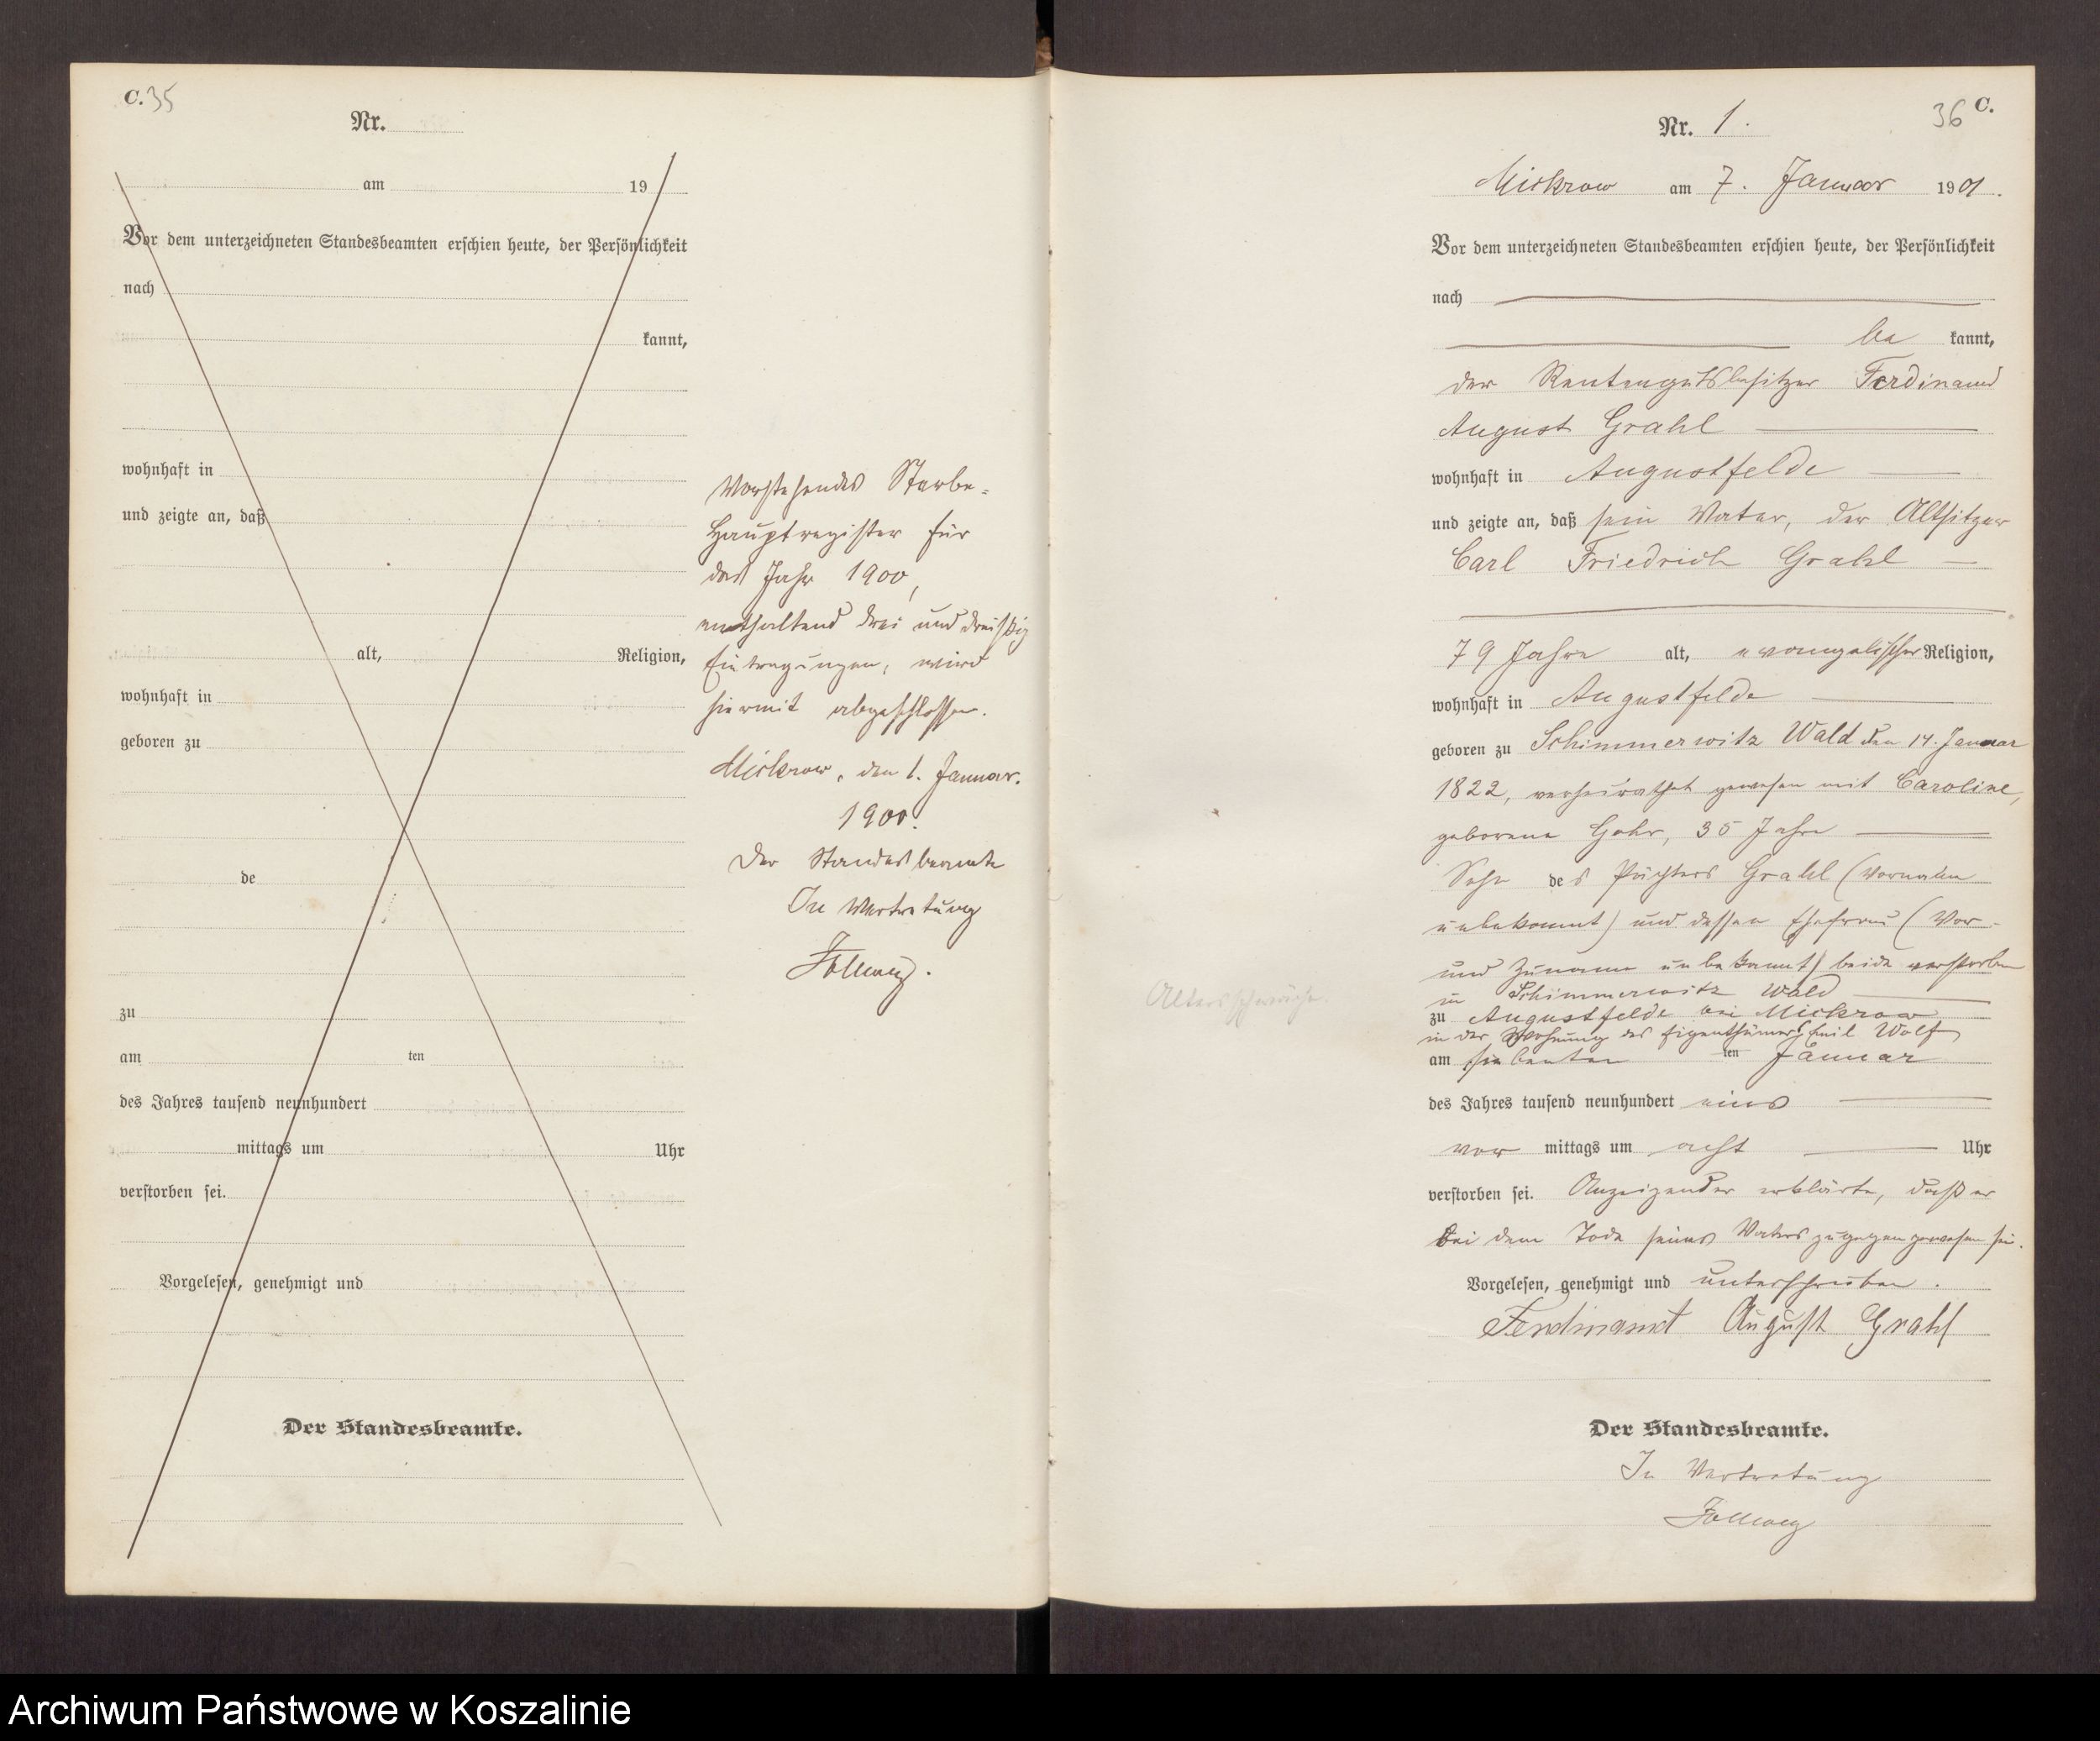 C. 35
Nr.
am 19
Vor dem unterzeichneten Standesbeamten erschien heute, der Persönlichkeit
nach
kannt,
wohnhaft in
und zeigte an, daß
alt, Religion,
wohnhaft in
geboren zu
de
zu
am ten
des Jahres tausend neunhundert
mittags um Uhr
verstorben sei.
Vorgelesen, genehmigt und
Der Standesbeamte.
Vorstehendes Sterbe-
Hauptregister für
das Jahr 1900,
enthaltend drei und dreißig
Eintragungen, wird
hiermit abgeschlossen.
Mickrow, den 1. Januar.
1900.
Der Standesbeamte
In Vertretung
36 C.
Nr. 1.
Mickrow am 7. Januar 1901.
Vor dem unterzeichneten Standesbeamten erschien heute, der Persönlichkeit
nach
be kannt,
der Rentengutsbesitzer Ferdinand
August Grahl
wohnhaft in Augustfelde
und zeigte an, daß sein Vater, der Altsitzer
Carl Friedrich Grahl
79 Jahre alt, evangelischer Religion,
wohnhaft in Augustfelde
geboren zu Schimmerwitz Wald den 14. Januar
1822, verheirathet gewesen mit Caroline,
geborene Gohr, 35 Jahre
Sohn des Pächters Grahl (Vornamen
unbekannt) und dessen Ehefrau (Vor-
und Zuname unbekannt) beide verstorben
in Schimmerwitz Wald
zu Augustfelde bei Mickrow
in der Wohnung des Eigenthümers Emil Wolf
am siebenten ten Januar
des Jahres tausend neunhundert eins
vor mittags um acht Uhr
verstorben sei. Anzeigender erklärte, daß er
bei dem Tode seines Vaters zugegen gewesen sei.
Vorgelesen, genehmigt und unterschrieben.
Ferdinandt August Grahl
Der Standesbeamte.
In Vertretung
Altersschwäche.
Archiwum Państwowe w Koszalinie